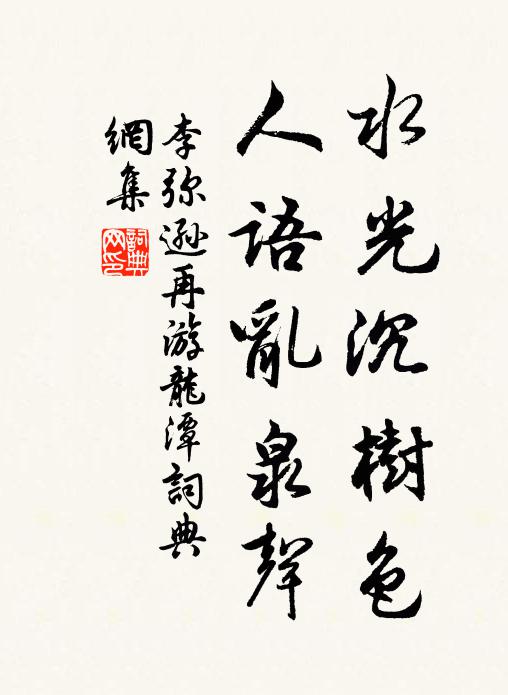 水光沉樹色
人語亂泉聲
李弥遜再游龍潭詞典
網集
詞典
网印